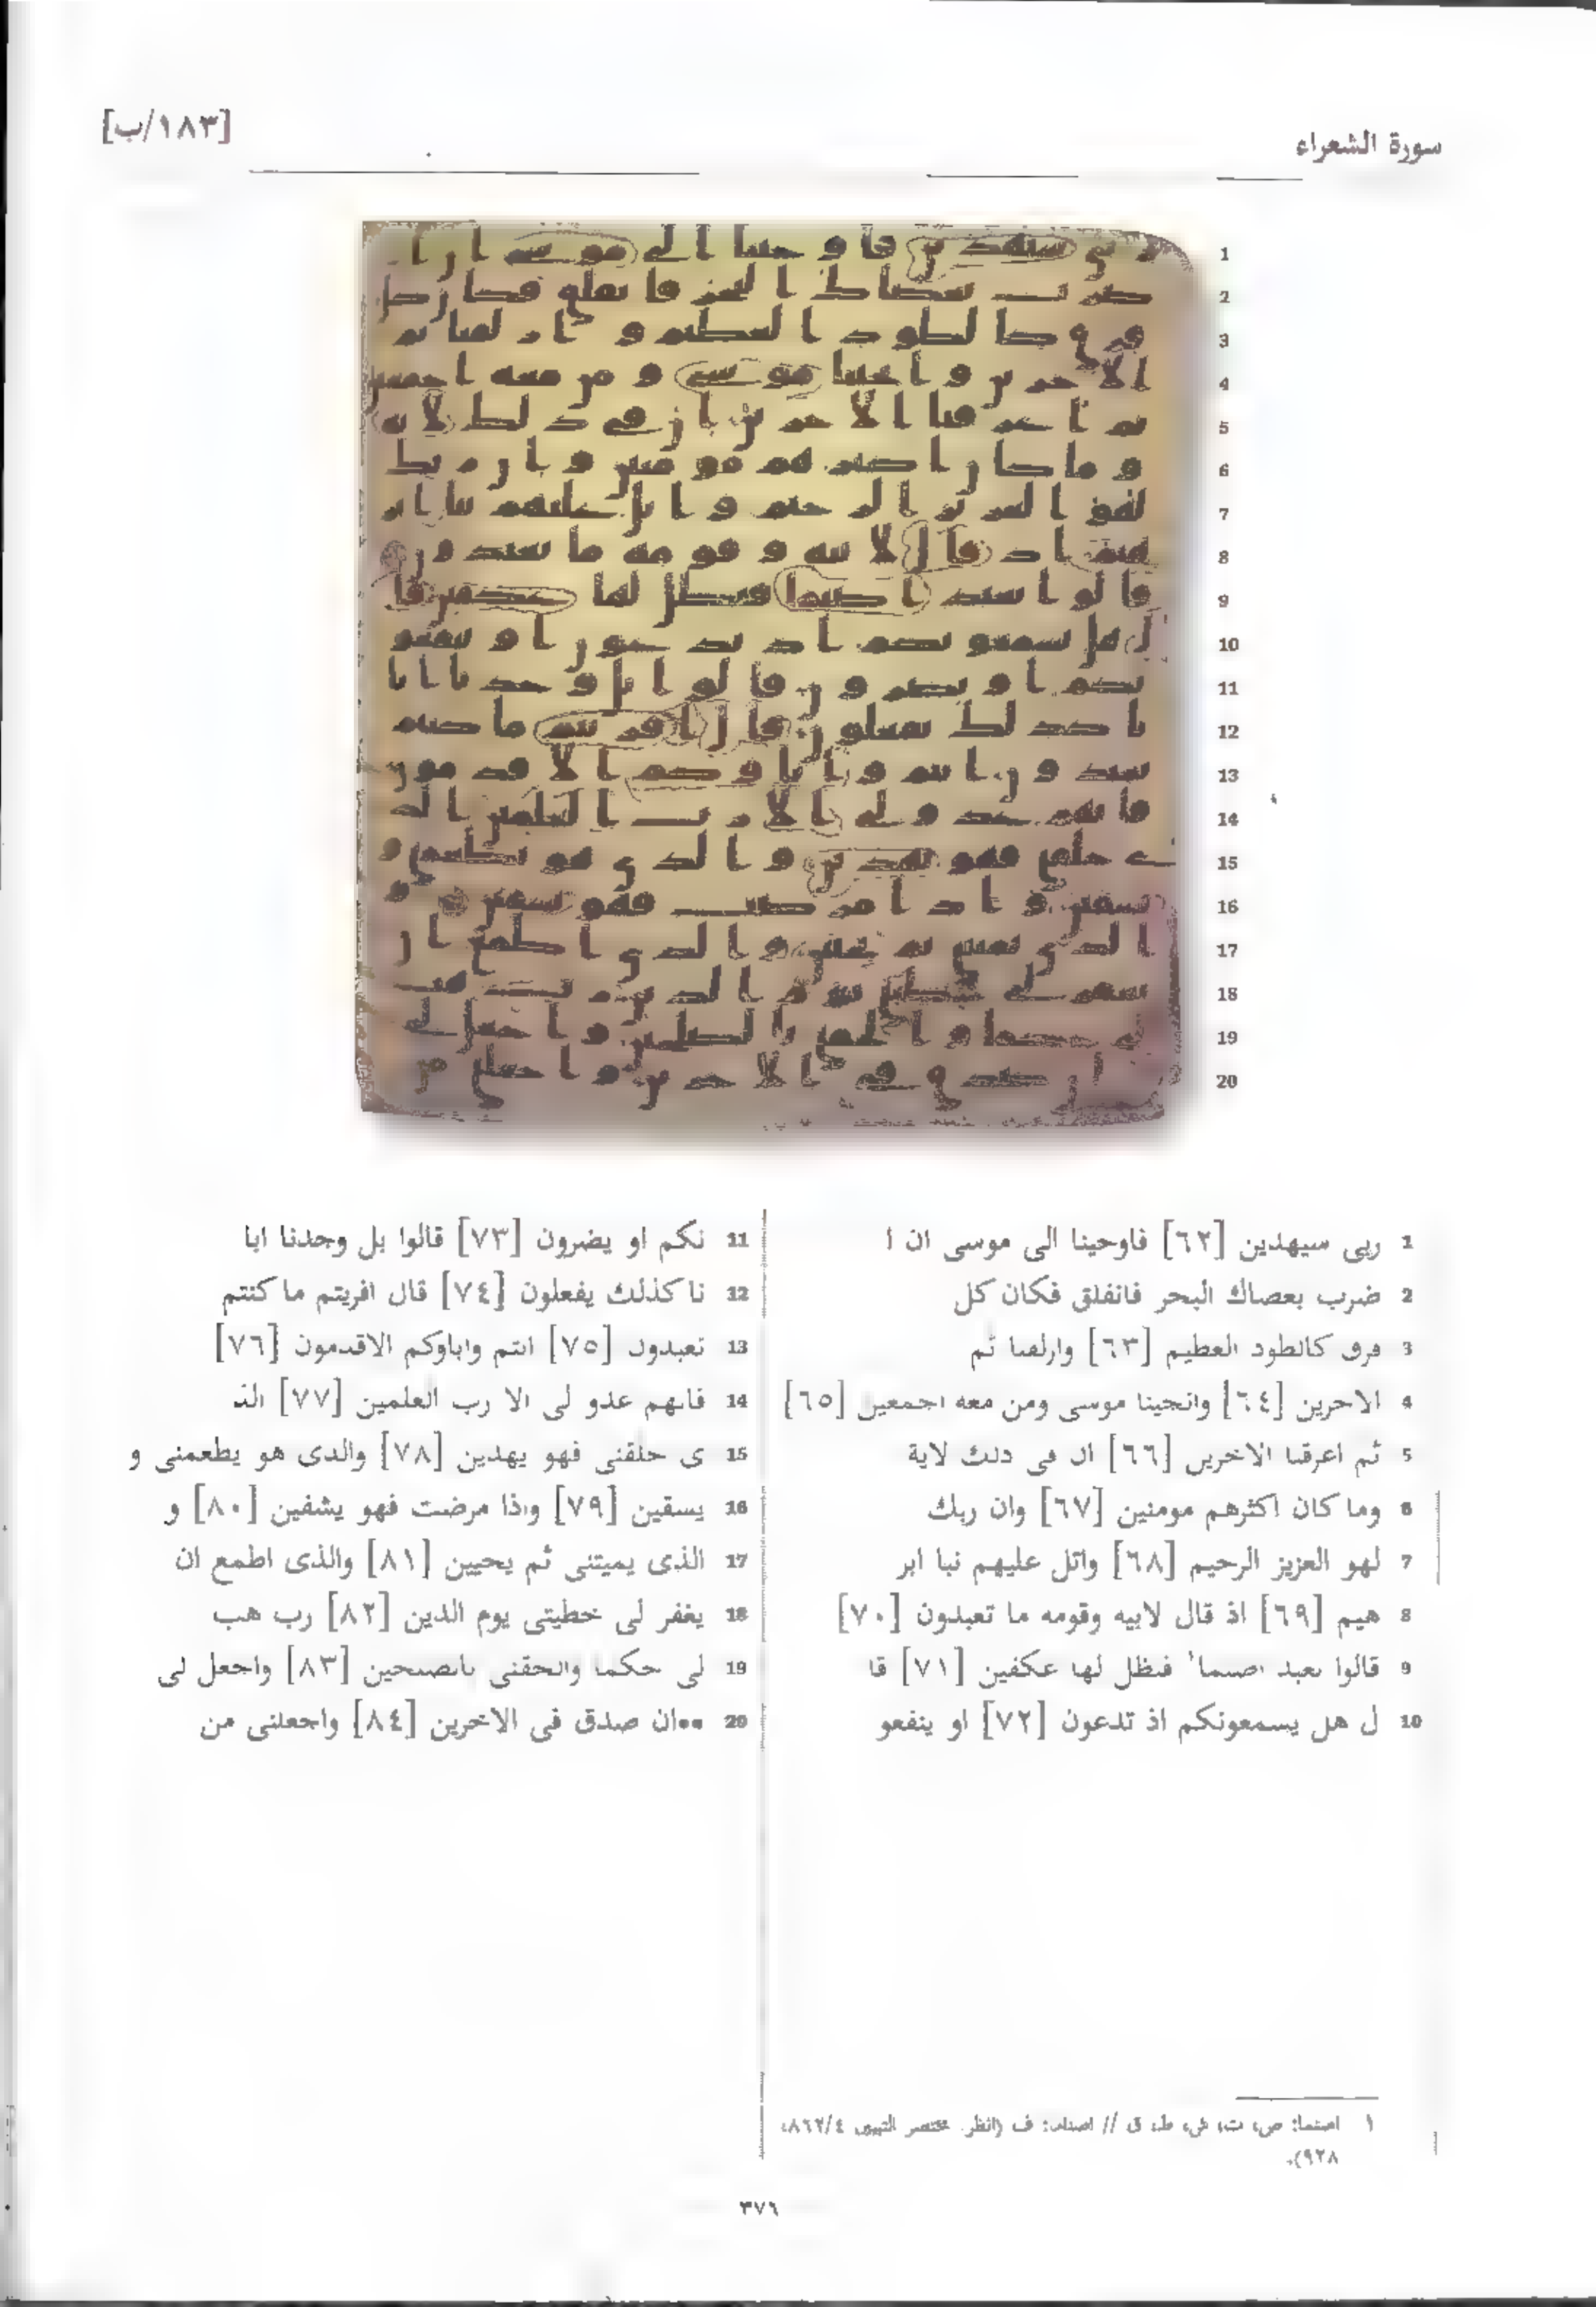 سورة الشعراء
[١٨٣/ب]
1 ربى سيهدين [٦٢] فاوحينا الى موسى ان ا
2 ضرب بعصاك البحر فانفلق فكان كل
3 فرق كالطود العطيم [٦٣] وارلفنا ثم
4 الاخرين [٦٤] وانجينا موسى ومن معه اجمعين [٦٥]
5 ثم اغرقنا الاخرين [٦٦] ان فى ذلك لاية
6 وما كان اكثرهم مومنين [٦٧] وان ربك
7 لهو العزيز الرحيم [٦٨] واتل عليهم نبا ابر
8 هيم [٦٩] اذ قال لابيه وقومه ما تعبدون [٧٠]
9 قالوا نعبد اصنما١ فنظل لها عكفين [٧١] قا
10 ل هل يسمعونكم اذ تدعون [٧٢] او ينفعو
11 نكم او يضرون [٧٣] قالوا بل وجدنا ابا
12 نا كذلك يفعلون [٧٤] قال افريتم ما كنتم
13 تعبدون [٧٥] انتم واباوكم الاقدمون [٧٦]
14 فانهم عدو لى الا رب العلمين [٧٧] الذ
15 ى خلقنى فهو يهدين [٧٨] والذى هو يطعمنى و
16 يسقين [٧٩] واذا مرضت فهو يشفين [٨٠] و
17 الذى يميتنى ثم يحيين [٨١] والذى اطمع ان
18 يغفر لى خطيتى يوم الدين [٨٢] رب هب
19 لى حكما والحقنى بالصلحين [٨٣] واجعل لى
20 ••ان صدق فى الاخرين [٨٤] واجعلنى من
١ اصنما: ص، ت، ش، ط، ق // اصناما: ف (انظر. مختصر التبيين ٨٦٢/٤،
٩٢٨).
٣٧٦